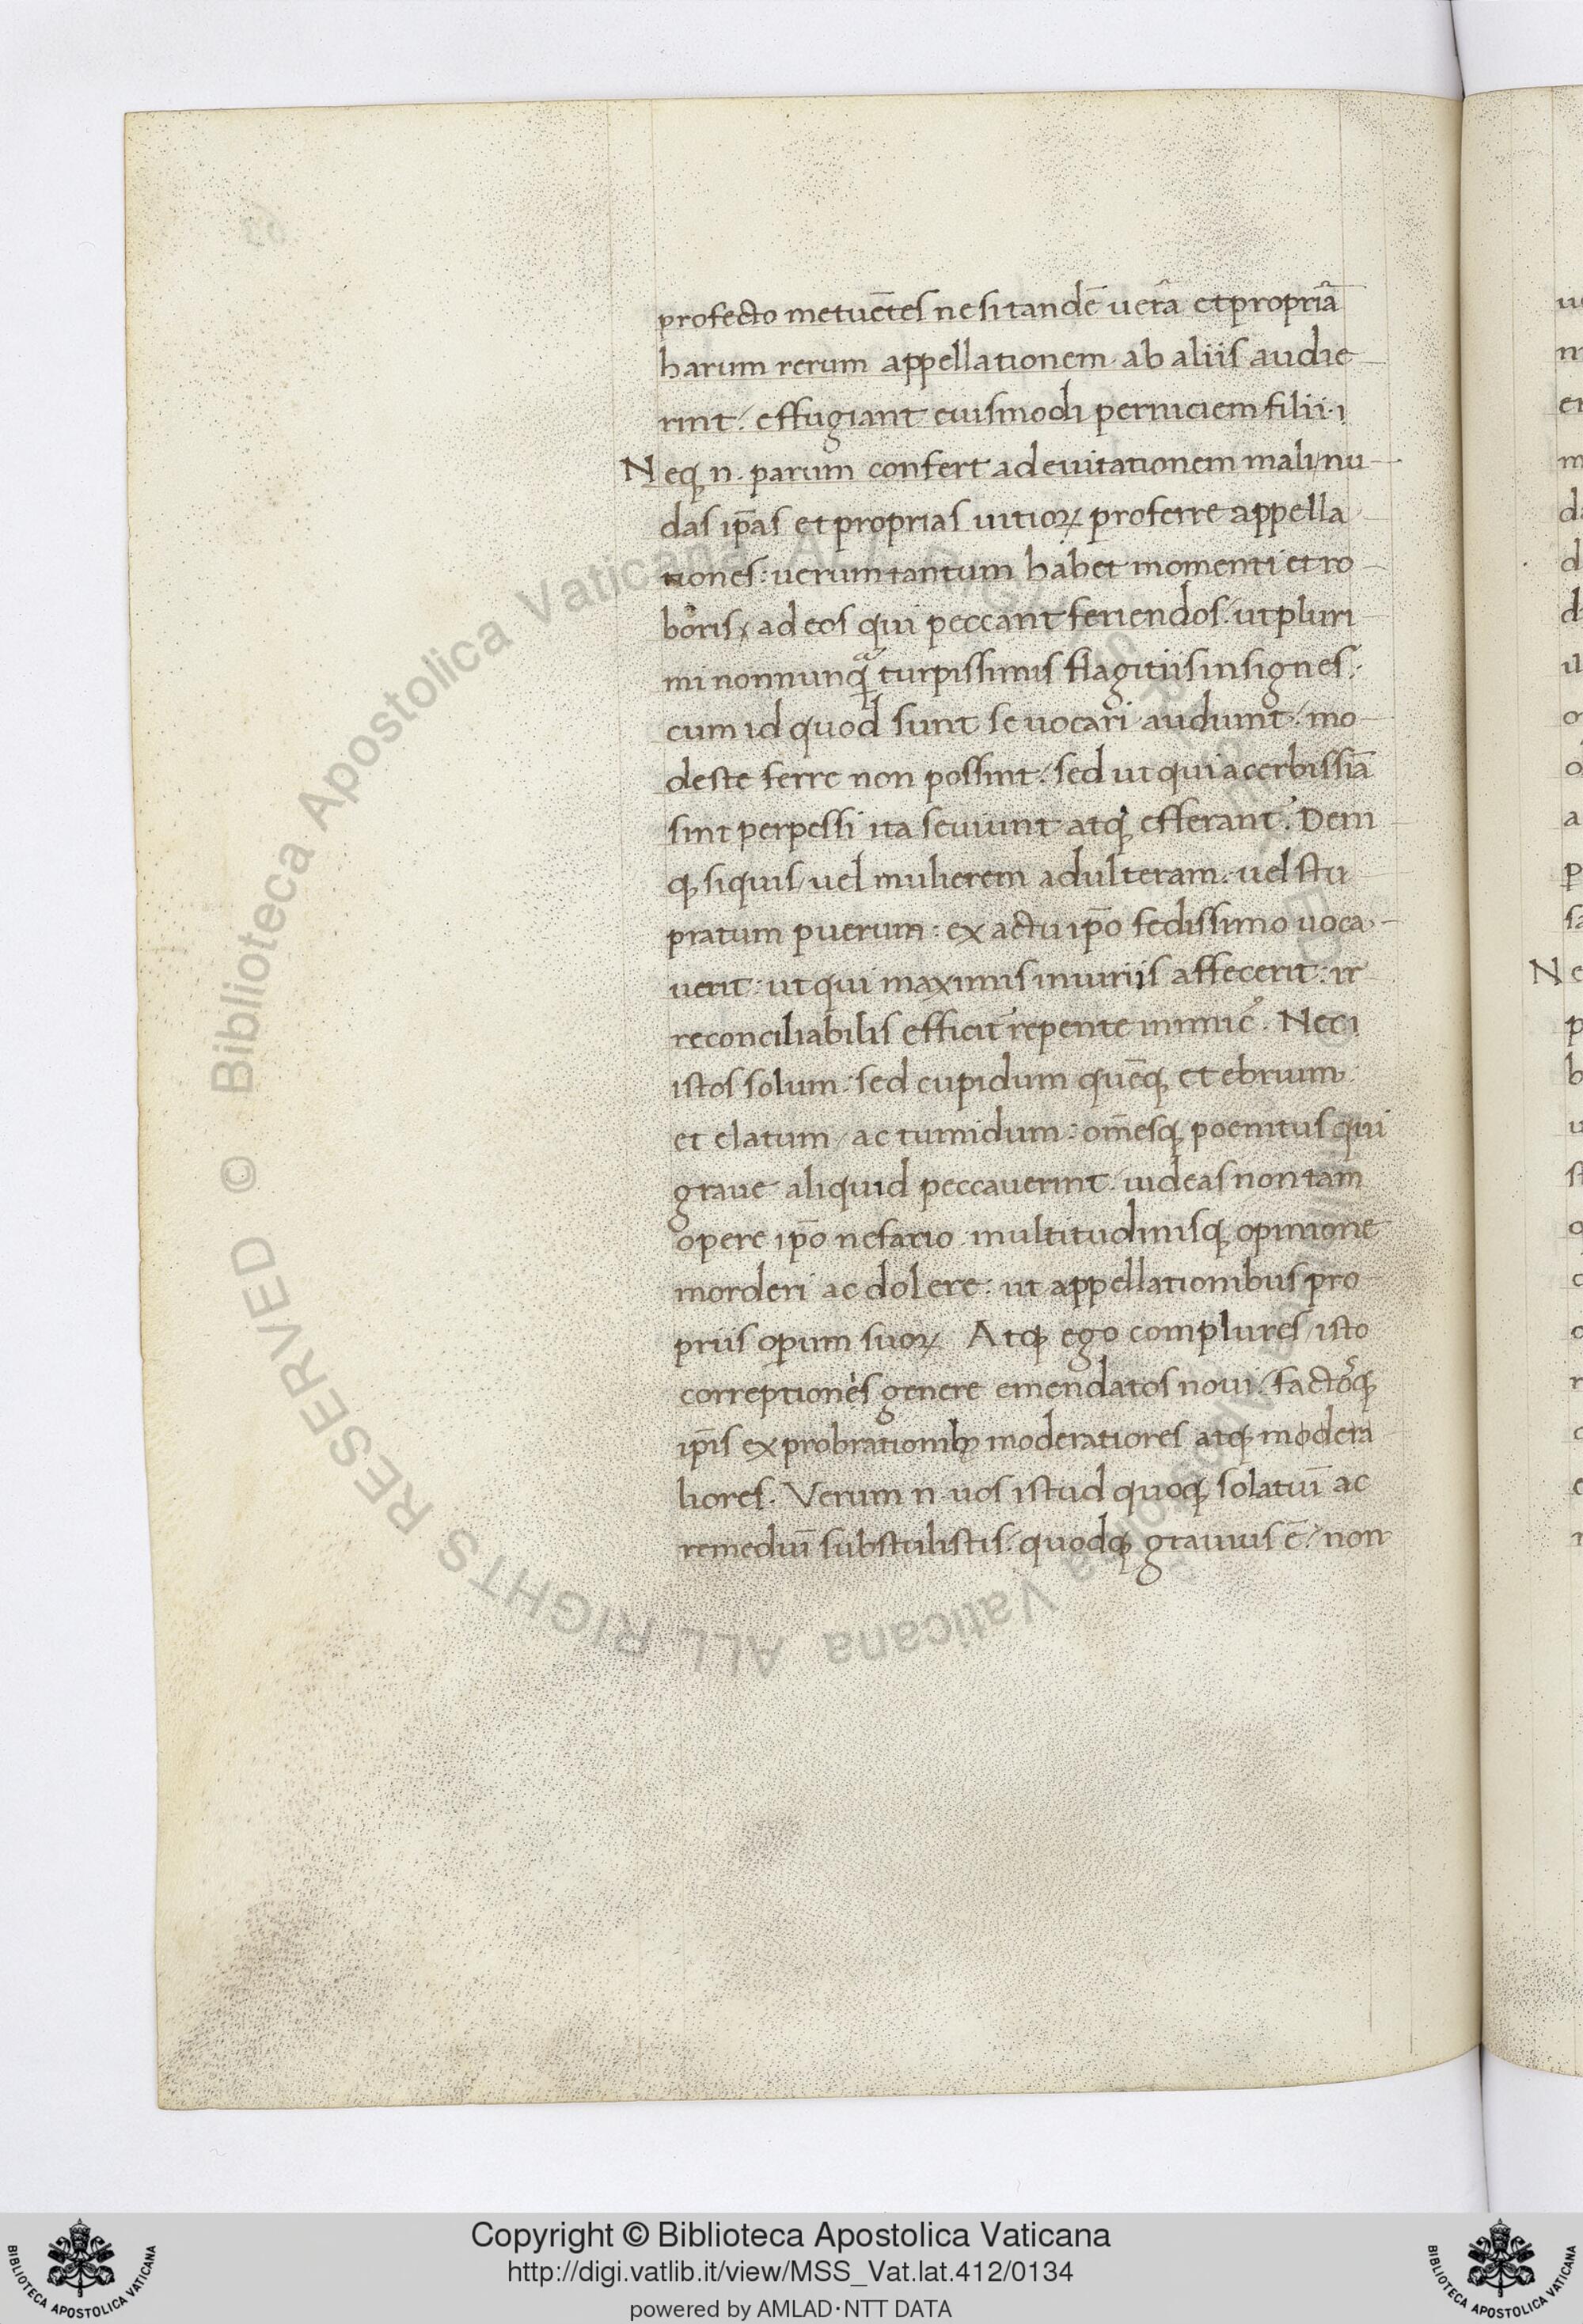 profecto metuētes ne si tandē uerā et propriā
harum rerum appellationem ab aliis audie
rint / effugiant eiusmodi perniciem filii.
Neq; n. parum confert ad euitationem mali / nu
das ip̄as et proprias uitioꝝ proferre appella
tiones: uerum tantum habet momenti et ro
boris / ad eos qui peccant feriendos / ut pluri
mi nonnunqᵃ turpissimis flagitiis insignes:
cum id quod sunt se uocari audiunt / mo
deste ferre non possint / sed ut qui acerbissīa
sint perpessi ita seuiunt atq; efferant᾿. Deni
q; siquis / uel mulierem adulteram: uel stu
pratum puerum: ex actu ip̄o fedissimo uoca
uerit: ut qui maximis iniuriis affecerit: ir
reconciliabilis efficit᾿ repente inimicꝰ. Nec
istos solum: sed cupidum quēq; et ebrium:
et elatum / ac tumidum: om̄esq; poenitus qui
graue aliquid peccauerint / uideas non tam
opere ip̄o nefario multitudinisq; opinione
morderi ac dolere: ut appellationibus pro
priis operum suoꝝ. Atq; ego complures / isto
correptionès genere emendatos noui / factosq;
ip̄is exprobrationibꝫ moderatiores atq; modera
liores. Verum n. uos istud quoq; solatiū ac
remediū substulistis / quodq; grauius ē / non
Copyright © Biblioteca Apostolica Vaticana
http://digi.vatlib.it/view/MSS_Vat.lat.412/0134
powered by AMLAD·NTT DATA
BIBLIOTECA APOSTOLICA VATICANA
BIBLIOTECA APOSTOLICA VATICANA
© Biblioteca Apostolica Vaticana ALL RIGHTS RESERVED